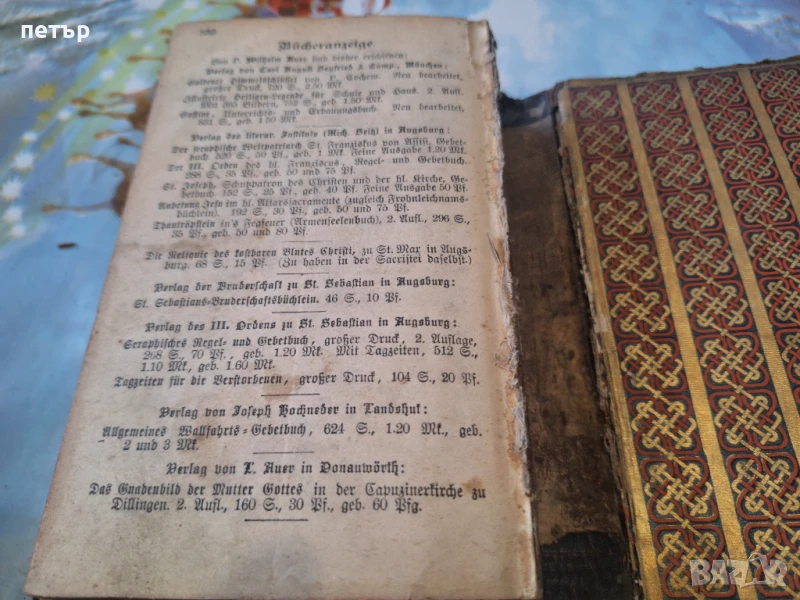 петър
Bücheranzeige.
Von P. Wilhelm Auer sind bisher erschienen:
Verlag von Carl August Seyfried & Comp., München:
Goldener Himmelsschlüssel von P. Cochem. Neu bearbeitet,
großer Druck, 720 S., 2.50 Mk.
Illustrirte Heiligen-Legende für Schule und Haus. 2. Aufl.
Mit 365 Bildern, 752 S., geb. 1.50 Mk.
Goffine, Unterrichts- und Erbauungsbuch. Neu bearbeitet,
831 S., geb. 3 Mk.
Verlag des literar. Instituts (Mich. Seitz) in Augsburg:
Der seraphische Weltpatriarch St. Franziskus von Assisi, Gebet-
buch. 520 S., 50 Pf., geb. 1 Mk. Feine Ausgabe 1.20 Mk.
Der III. Orden des hl. Franziscus, Regel- und Gebetbuch.
288 S., 35 Pf., geb. 50 und 75 Pf.
St. Joseph, Schutzpatron des Christen und der hl. Kirche, Ge-
betbuch. 152 S., 25 Pf., geb. 40 Pf. Feine Ausgabe 50 Pf.
Anbetung Jesu im hl. Altarssacramente (zugleich Frohnleichnams-
büchlein). 192 S., 30 Pf., geb. 50 und 75 Pf.
Thautröpflein in's Fegfeuer (Armenseelenbuch), 2. Aufl., 296 S.,
35 Pf., geb. 50 und 80 Pf.
Die Reliquie des kostbaren Blutes Christi, zu St. Max in Augs-
burg. 68 S., 15 Pf. (Zu haben in der Sacristei daselbst.)
Verlag der Bruderschaft zu St. Sebastian in Augsburg:
St. Sebastians-Bruderschaftsbüchlein. 46 S., 10 Pf.
Verlag des III. Ordens zu St. Sebastian in Augsburg:
Seraphisches Regel- und Gebetbuch, großer Druck, 2. Auflage,
268 S., 70 Pf., geb. 1.20 Mk. Mit Tagzeiten, 512 S.,
1.10 Mk., geb. 1.60 Mk.
Tagzeiten für die Verstorbenen, großer Druck, 104 S., 20 Pf.
Verlag von Joseph Hochneder in Landshut:
Allgemeines Wallfahrts-Gebetbuch, 624 S., 1.20 Mk., geb.
2 und 3 Mk.
Verlag von L. Auer in Donauwörth:
Das Gnadenbild der Mutter Gottes in der Capuzinerkirche zu
Dillingen. 2. Aufl., 160 S., 30 Pf., geb. 60 Pfg.
BAZAR